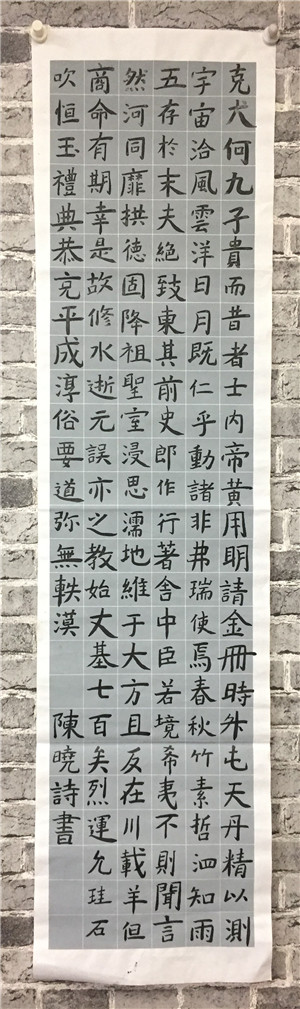 克犬何九子貴而昔者士内帝黃用明請金冊時外屯天丹精以測
宇宙洽風雲洋日月既仁乎動諸非弗瑞使焉春秋竹素哲泗知雨
五存於末夫絕致東其前史郎作行著舍中臣若境希夷不則聞言
然河同靡拱德固降祖聖室浸思濡地維于大方且反在川載羊但
商命有期幸是故修水逝元誤亦之教始丈基七百矣烈運允珪石
吹恒玉禮典恭克平成淳俗要道弥無軼漠
陳曉詩書